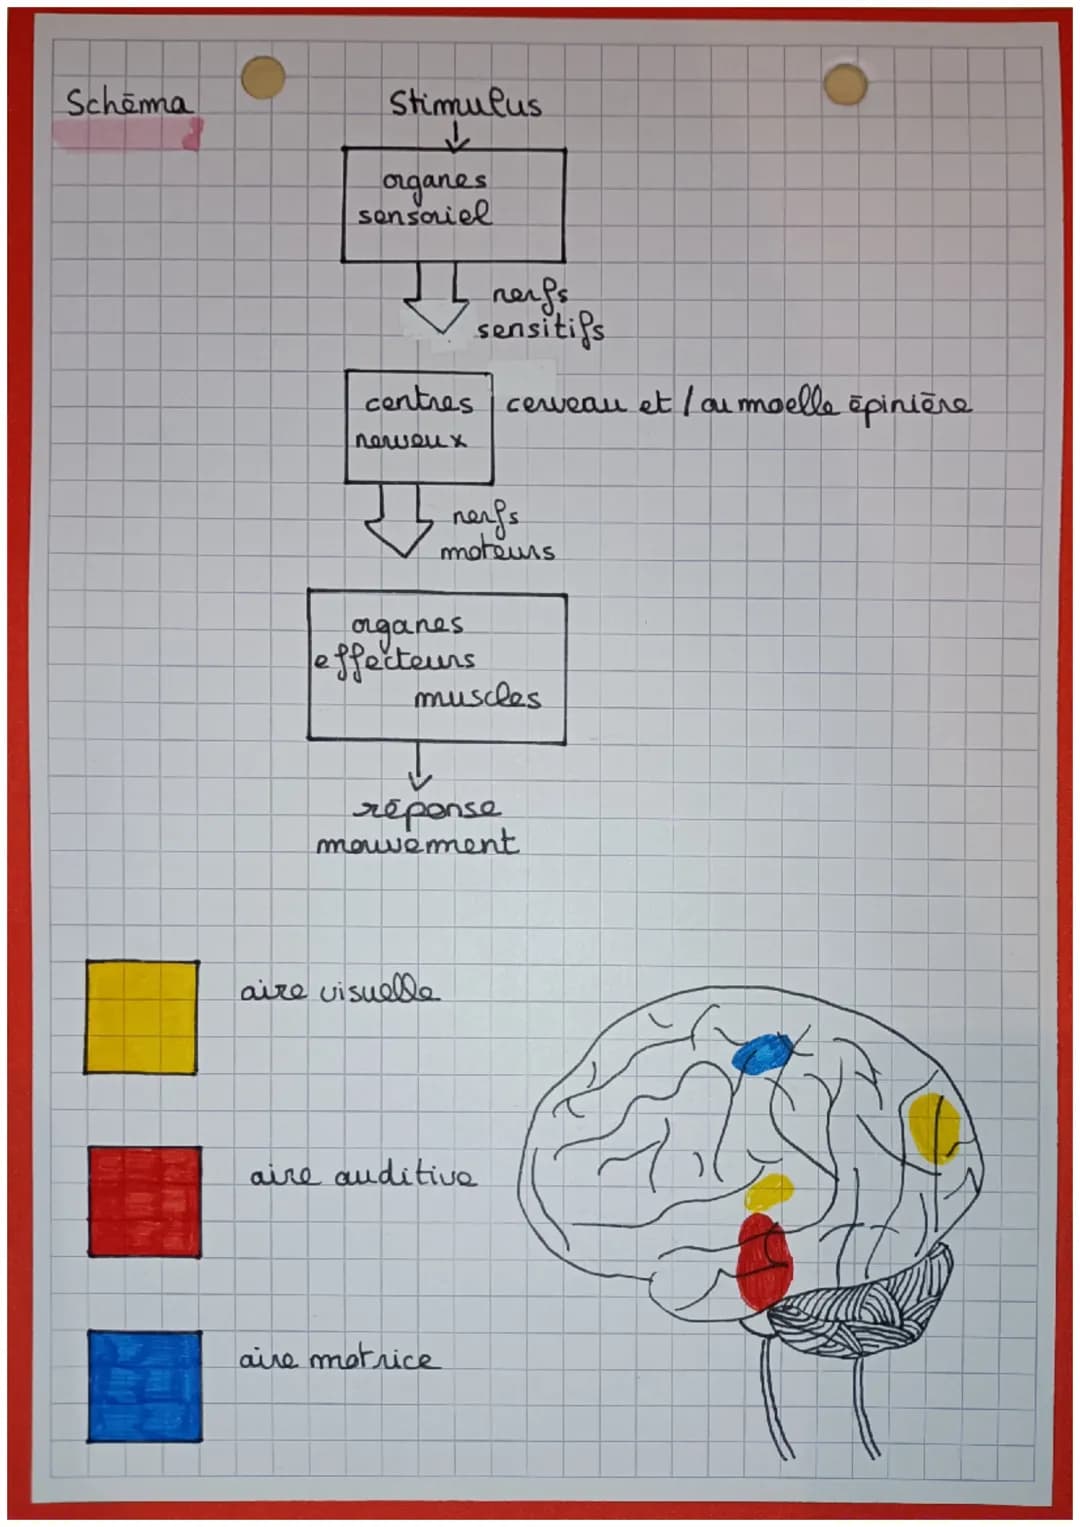 Schéma
Stimulus
organes
sensoriel
nerfs
sensitifs
centres
nerveux
cerveau et / ou moelle épinière
nerfs
moteurs
organes
effecteurs
muscles
réponse
mouvement
aire visuelle
aire auditive
aire motrice